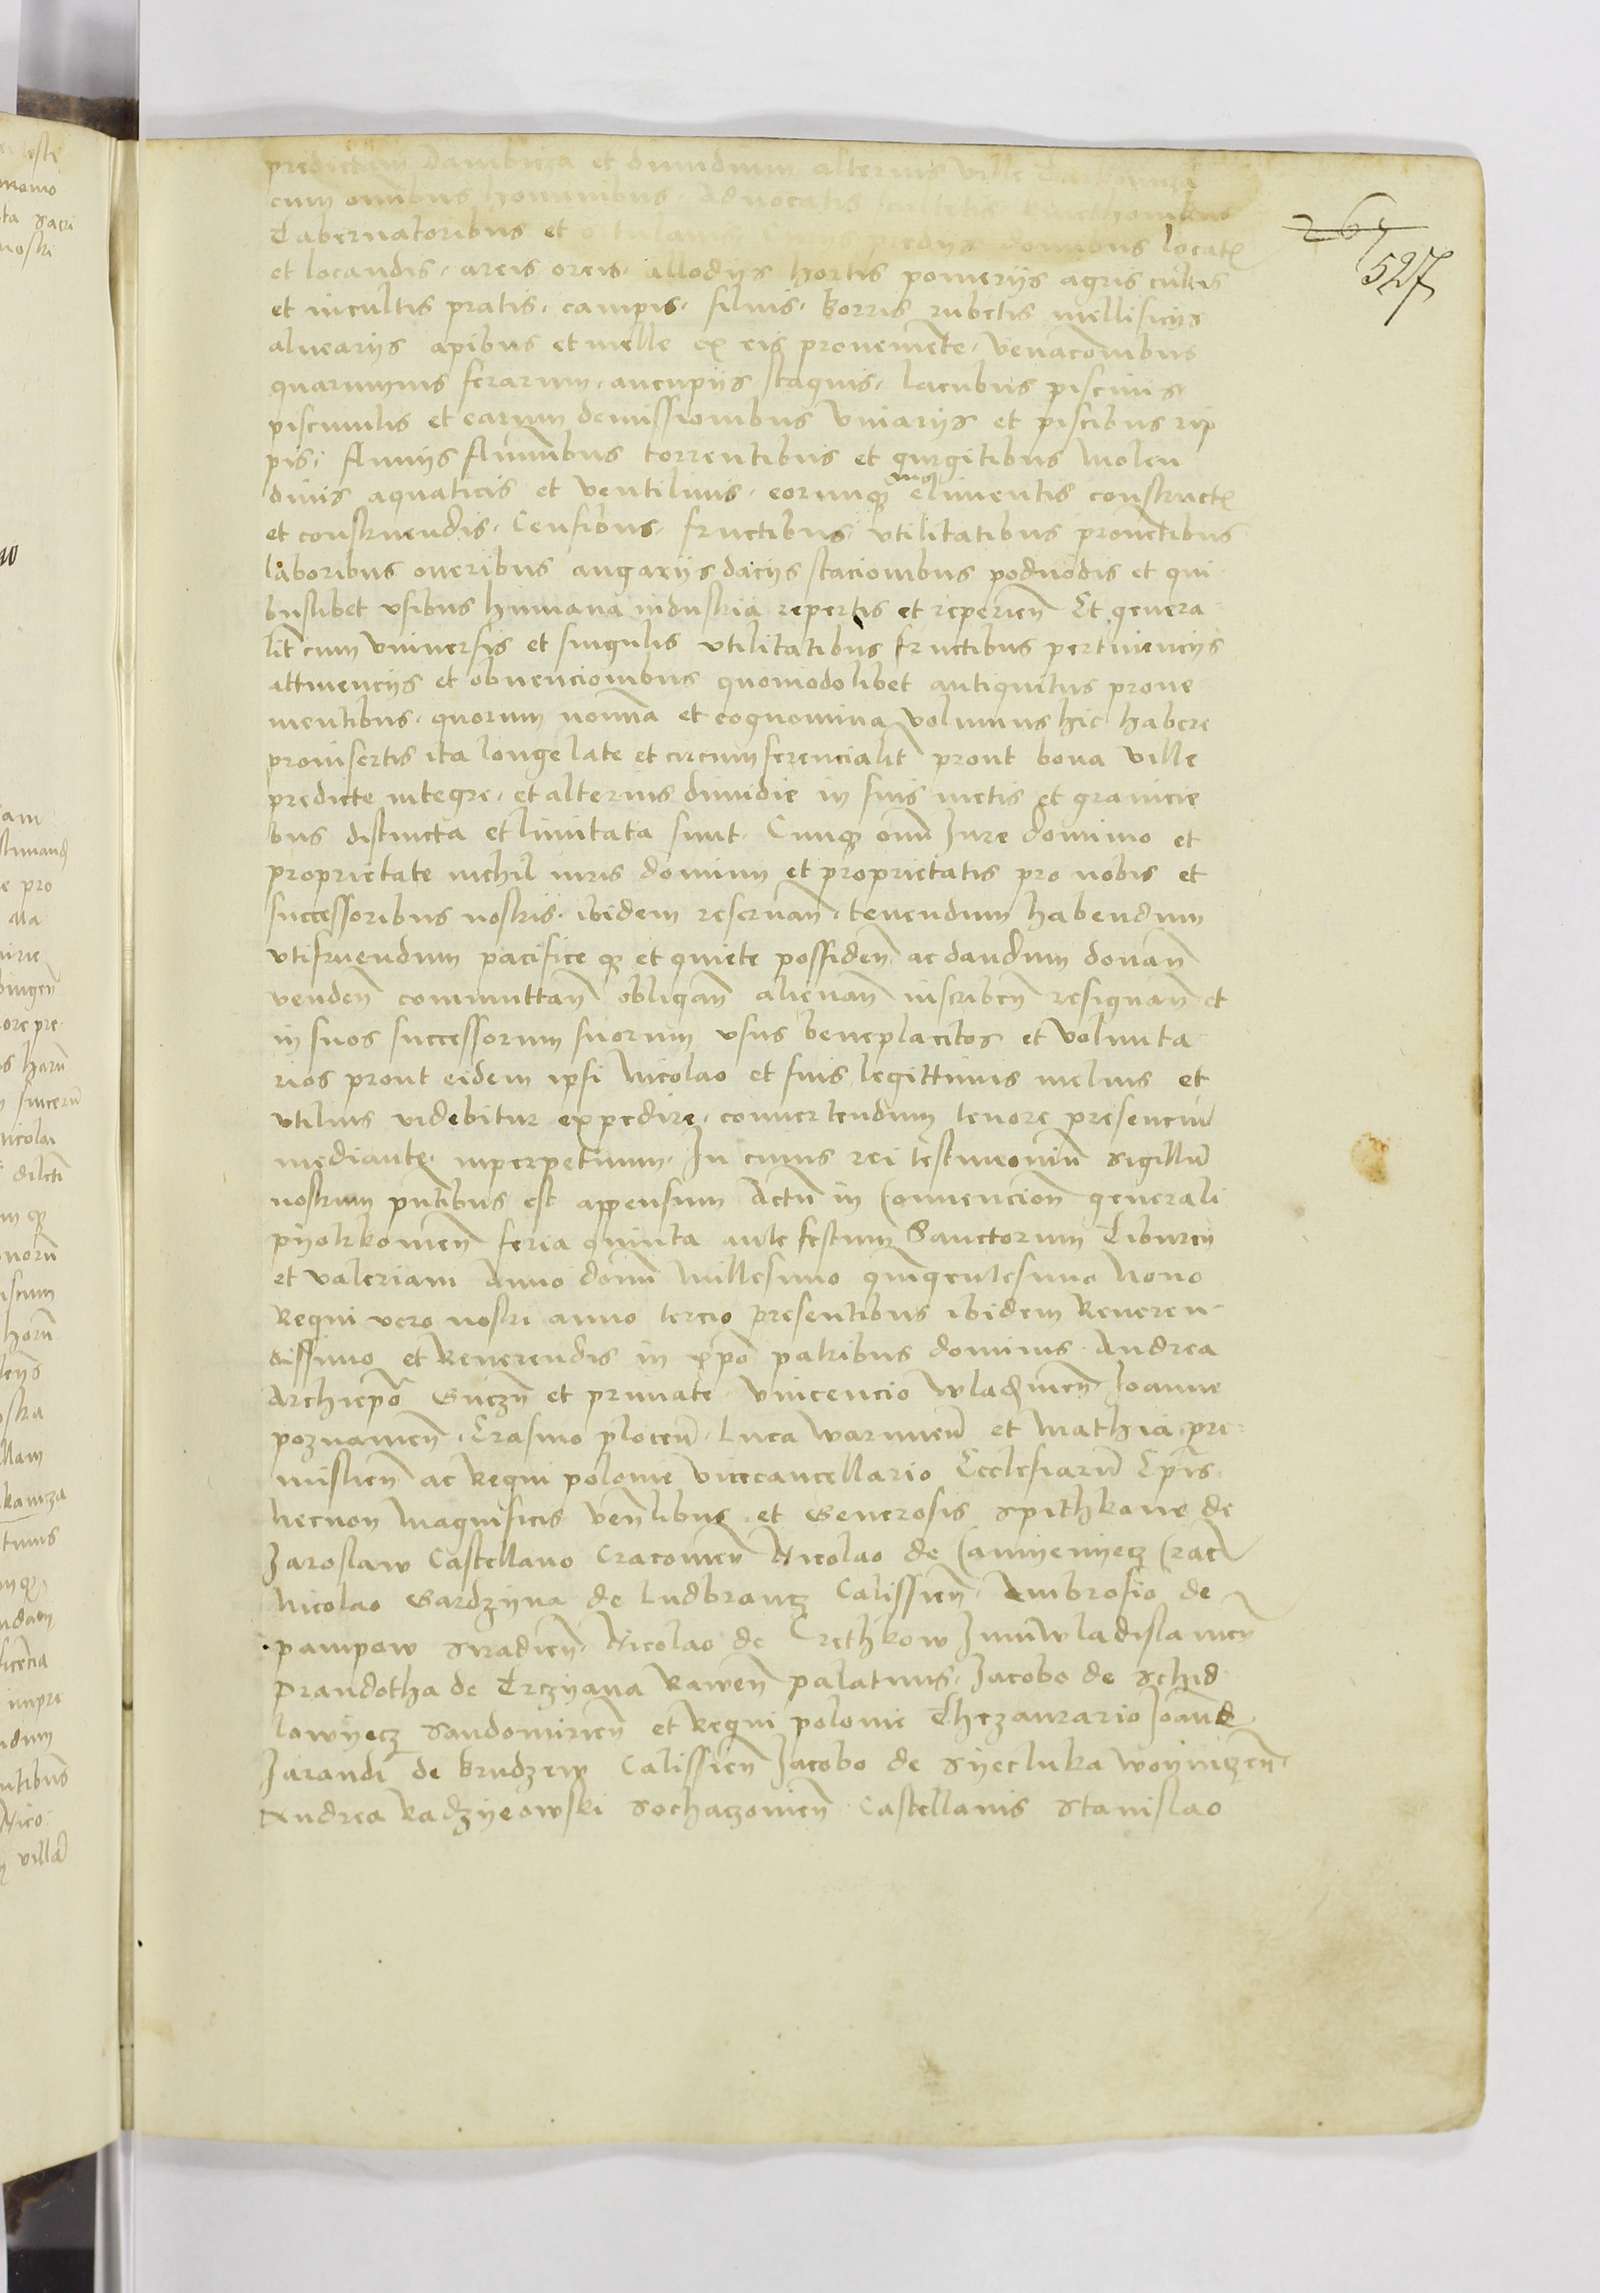 predictam Dambicza et dimidium alterius ville
cum omnibus hominibus advocatis scultetis kmethonibus
Tabernatoribus et predijs domibus locat
et locandis. areis oreis. allodijs hortis pomerijs agris cultis
et incultis pratis. campis. silvis. borris rubetis mellificijs
alvearijs apibus et melle ex eis provenient. venacionibus
quarumvis ferarum. aucupijs stagnis. lacubus piscinis
piscinulis et earum demissionibus vivarijs et piscibus rip
pis. fluvijs fluminibus torrentibus et gurgitibus Molen
dinis aquaticis et ventilivis. eorumque emolimentis construct
et construendis. Censibus. fructibus. utilitatibus proventibus
laboribus oneribus angarijs dacijs stacionibus podvodis et qui
buslibet usibus humana industria repertis et reperien Et genera
lit cum universis et singulis utilitatibus fructibus pertinencijs
attinencijs et obvencionibus quomodolibet antiquitus prove
nientibus. quorum nomina et cognomina volumus hic habere
pro insertis ita longe late et circumferencialit prout bona ville
predicte integre. et alterius dimidie in suis metis et granicie
bus distincta et limitata sunt. Cumque omni Jure dominio et
proprietate nichil iuris dominij et proprietatis pro nobis et
successoribus nostris. ibidem reservan. tenendum habendum
utifruendum pacifice que et quiete possiden ac dandum donan
venden commuttan obligan alienan inscriben resignan et
in suos successorum suorum usus beneplacitos et volunta
rios prout eidem ipsi Nicolao et suis legittimis melius et
utilius videbitur expedire. convertendum tenore presencium
mediante. inperpetuum. In cuius rei testimonium Sigillum
nostrum pntibus est appensum Actum in Convencion generali
pijotrkowien feria quinta ante festum Sanctorum Tiburcij
et valeriani Anno domi Millesimo quingentesimo Nono
Regni vero nostri anno tercio presentibus ibidem Reveren
dissimo et Reverendis in xpo patribus dominis. Andrea
Archiepo Gnezn et primate. Vincencio wladivien Joanne
poznanien. Erasmo plocen. Luca warmien et Mathia pre
mislien ac Regni polonie vicecancellario Ecclesiarum Epis
Necnon Magnificis venlibus. et Generosis Spithkone de
Jaroslaw Castellano Cracovien Nicolao de Camyenyecz Crac
Nicolao Gardzyna de Ludbrancz Calissien. Ambrosio de
pampow Siradien. Nicolao de Crethkow Juniwladislavien
Prandotha de Trczyana Rawen palatinis. Jacobo de Schid
lowyecz Sandomirien et Regni polonie Thezaurario Joanne
Jarandi de Brudzew Calissien Jacobo de Syecluka woynicen
Andrea Radzyeowski Sochaczovien Castellanis Stanislao
265
527